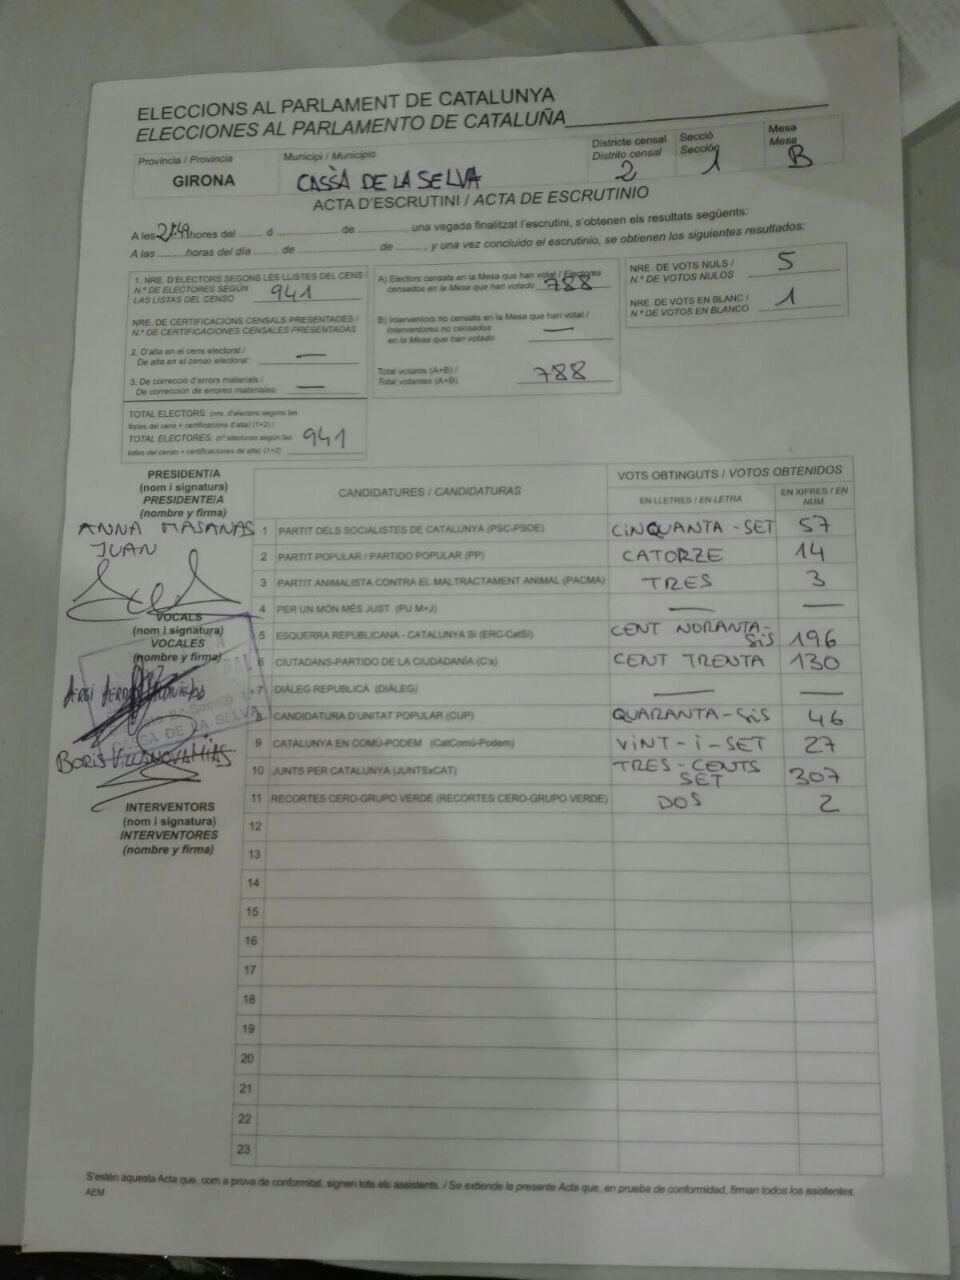 ELECCIONS AL PARLAMENT DE CATALUNYA
ELECCIONES AL PARLAMENTO DE CATALUÑA
Província / Provincia
GIRONA
Municipi / Municipio
CASSÀ DE LA SELVA
Districte censal
Distrito censal
2
Secció
Sección
1
Mesa
Mesa
B
ACTA D'ESCRUTINI / ACTA DE ESCRUTINIO
A les 21:49 hores del ........ d ........ de ........, una vegada finalitzat l'escrutini, s'obtenen els resultats següents:
A las ........ horas del día ........ de ........ de ........, y una vez concluido el escrutinio, se obtienen los siguientes resultados:
1. NRE. D'ELECTORS SEGONS LES LLISTES DEL CENS /
N.º DE ELECTORES SEGÚN
LAS LISTAS DEL CENSO 941
NRE. DE CERTIFICACIONS CENSALS PRESENTADES /
N.º DE CERTIFICACIONES CENSALES PRESENTADAS
2. D'alta en el cens electoral /
De alta en el censo electoral: —
3. De correcció d'errors materials /
De corrección de errores materiales: —
TOTAL ELECTORS: (nre. d'electors segons les
llistes del cens + certificacions d'alta) (1+2) /
TOTAL ELECTORES: (nº electores según las
listas del censo + certificaciones de alta) (1+2) 941
A) Electors censats en la Mesa que han votat / Electores
censados en la Mesa que han votado 788
B) Interventors no censats en la Mesa que han votat /
Interventores no censados
en la Mesa que han votado —
Total votants (A+B) /
Total votantes (A+B) 788
NRE. DE VOTS NULS /
N.º DE VOTOS NULOS 5
NRE. DE VOTS EN BLANC /
N.º DE VOTOS EN BLANCO 1
PRESIDENT/A
(nom i signatura)
PRESIDENTE/A
(nombre y firma)
ANNA MASANAS
JUAN
VOCALS
(nom i signatura)
VOCALES
(nombre y firma)
CASSA DE LA SELVA
BORIS VILLANOVA
INTERVENTORS
(nom i signatura)
INTERVENTORES
(nombre y firma)
CANDIDATURES / CANDIDATURAS
VOTS OBTINGUTS / VOTOS OBTENIDOS
EN LLETRES / EN LETRA
EN XIFRES / EN NUM.
1 PARTIT DELS SOCIALISTES DE CATALUNYA (PSC-PSOE) CINQUANTA-SET 57
2 PARTIT POPULAR / PARTIDO POPULAR (PP) CATORZE 14
3 PARTIT ANIMALISTA CONTRA EL MALTRACTAMENT ANIMAL (PACMA) TRES 3
4 PER UN MÓN MÉS JUST (PU M+J) — —
5 ESQUERRA REPUBLICANA - CATALUNYA SÍ (ERC-CatSí) CENT NORANTA-SIS 196
6 CIUTADANS-PARTIDO DE LA CIUDADANÍA (C's) CENT TRENTA 130
7 DIÀLEG REPUBLICÀ (DIÀLEG) — —
8 CANDIDATURA D'UNITAT POPULAR (CUP) QUARANTA-SIS 46
9 CATALUNYA EN COMÚ-PODEM (CatComú-Podem) VINT-I-SET 27
10 JUNTS PER CATALUNYA (JUNTSxCAT) TRES-CENTS SET 307
11 RECORTES CERO-GRUPO VERDE (RECORTES CERO-GRUPO VERDE) DOS 2
12
13
14
15
16
17
18
19
20
21
22
23
S'estén aquesta Acta que, com a prova de conformitat, signen tots els assistents. / Se extiende la presente Acta que, en prueba de conformidad, firman todos los asistentes.
AEM